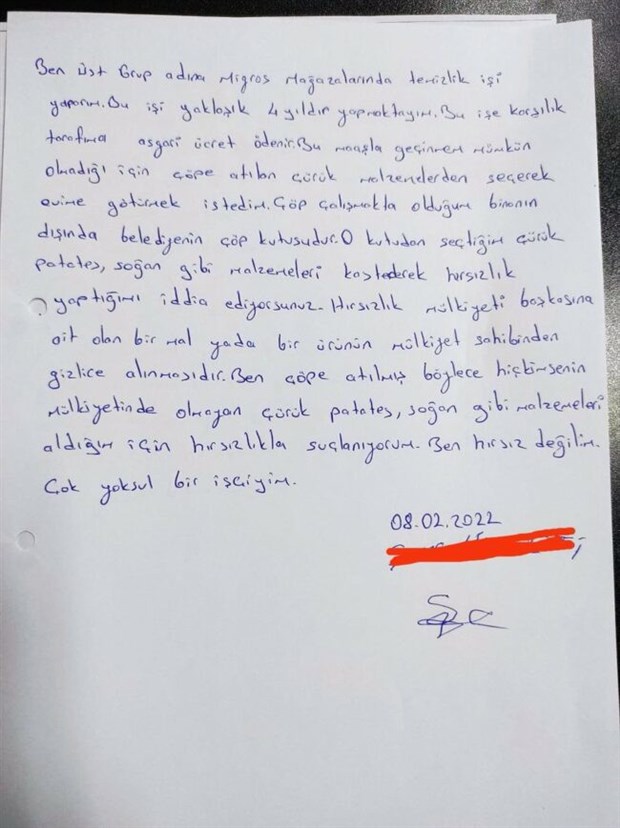 Ben Üst Grup adına Migros Mağazalarında temizlik işi
yaparım. Bu işi yaklaşık 4 yıldır yapmaktayım. Bu işe karşılık
tarafıma asgari ücret ödenir. Bu maaşla geçinmem mümkün
olmadığı için çöpe atılan çürük malzemelerden seçerek
evime götürmek istedim. Çöp çalışmakta olduğum binanın
dışında belediyenin çöp kutusudur. O kutudan seçtiğim çürük
patates, soğan gibi malzemeleri kastederek hırsızlık
yaptığımı iddia ediyorsunuz. Hırsızlık mülkiyeti başkasına
ait olan bir mal yada bir ürünün mülkiyet sahibinden
gizlice alınmasıdır. Ben çöpe atılmış böylece hiçbimsenin
mülkiyetinde olmayan çürük patates, soğan gibi malzemeleri
aldığım için hırsızlıkla suçlanıyorum. Ben hırsız değilim.
Çok yoksul bir işçiyim.
08.02.2022